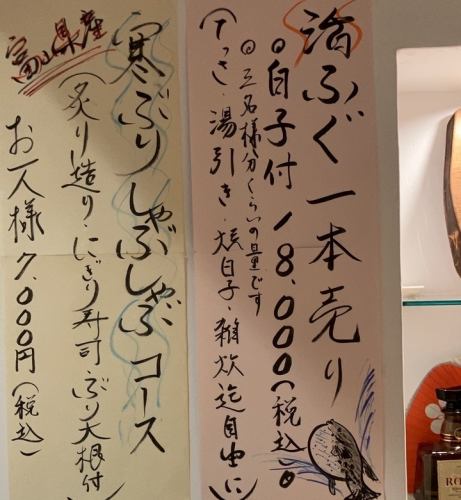 活ふぐ一本売り
◎白子付 18.000(税込)。
◎三名様分くらいの量です
(てっさ・湯引き・焼白子・雑炊迄自由に)
寒ぶりしゃぶしゃぶコース
富山県産
(炙り造り・にぎり寿司・ぶり大根付)
お一人様 7.000円(税込)